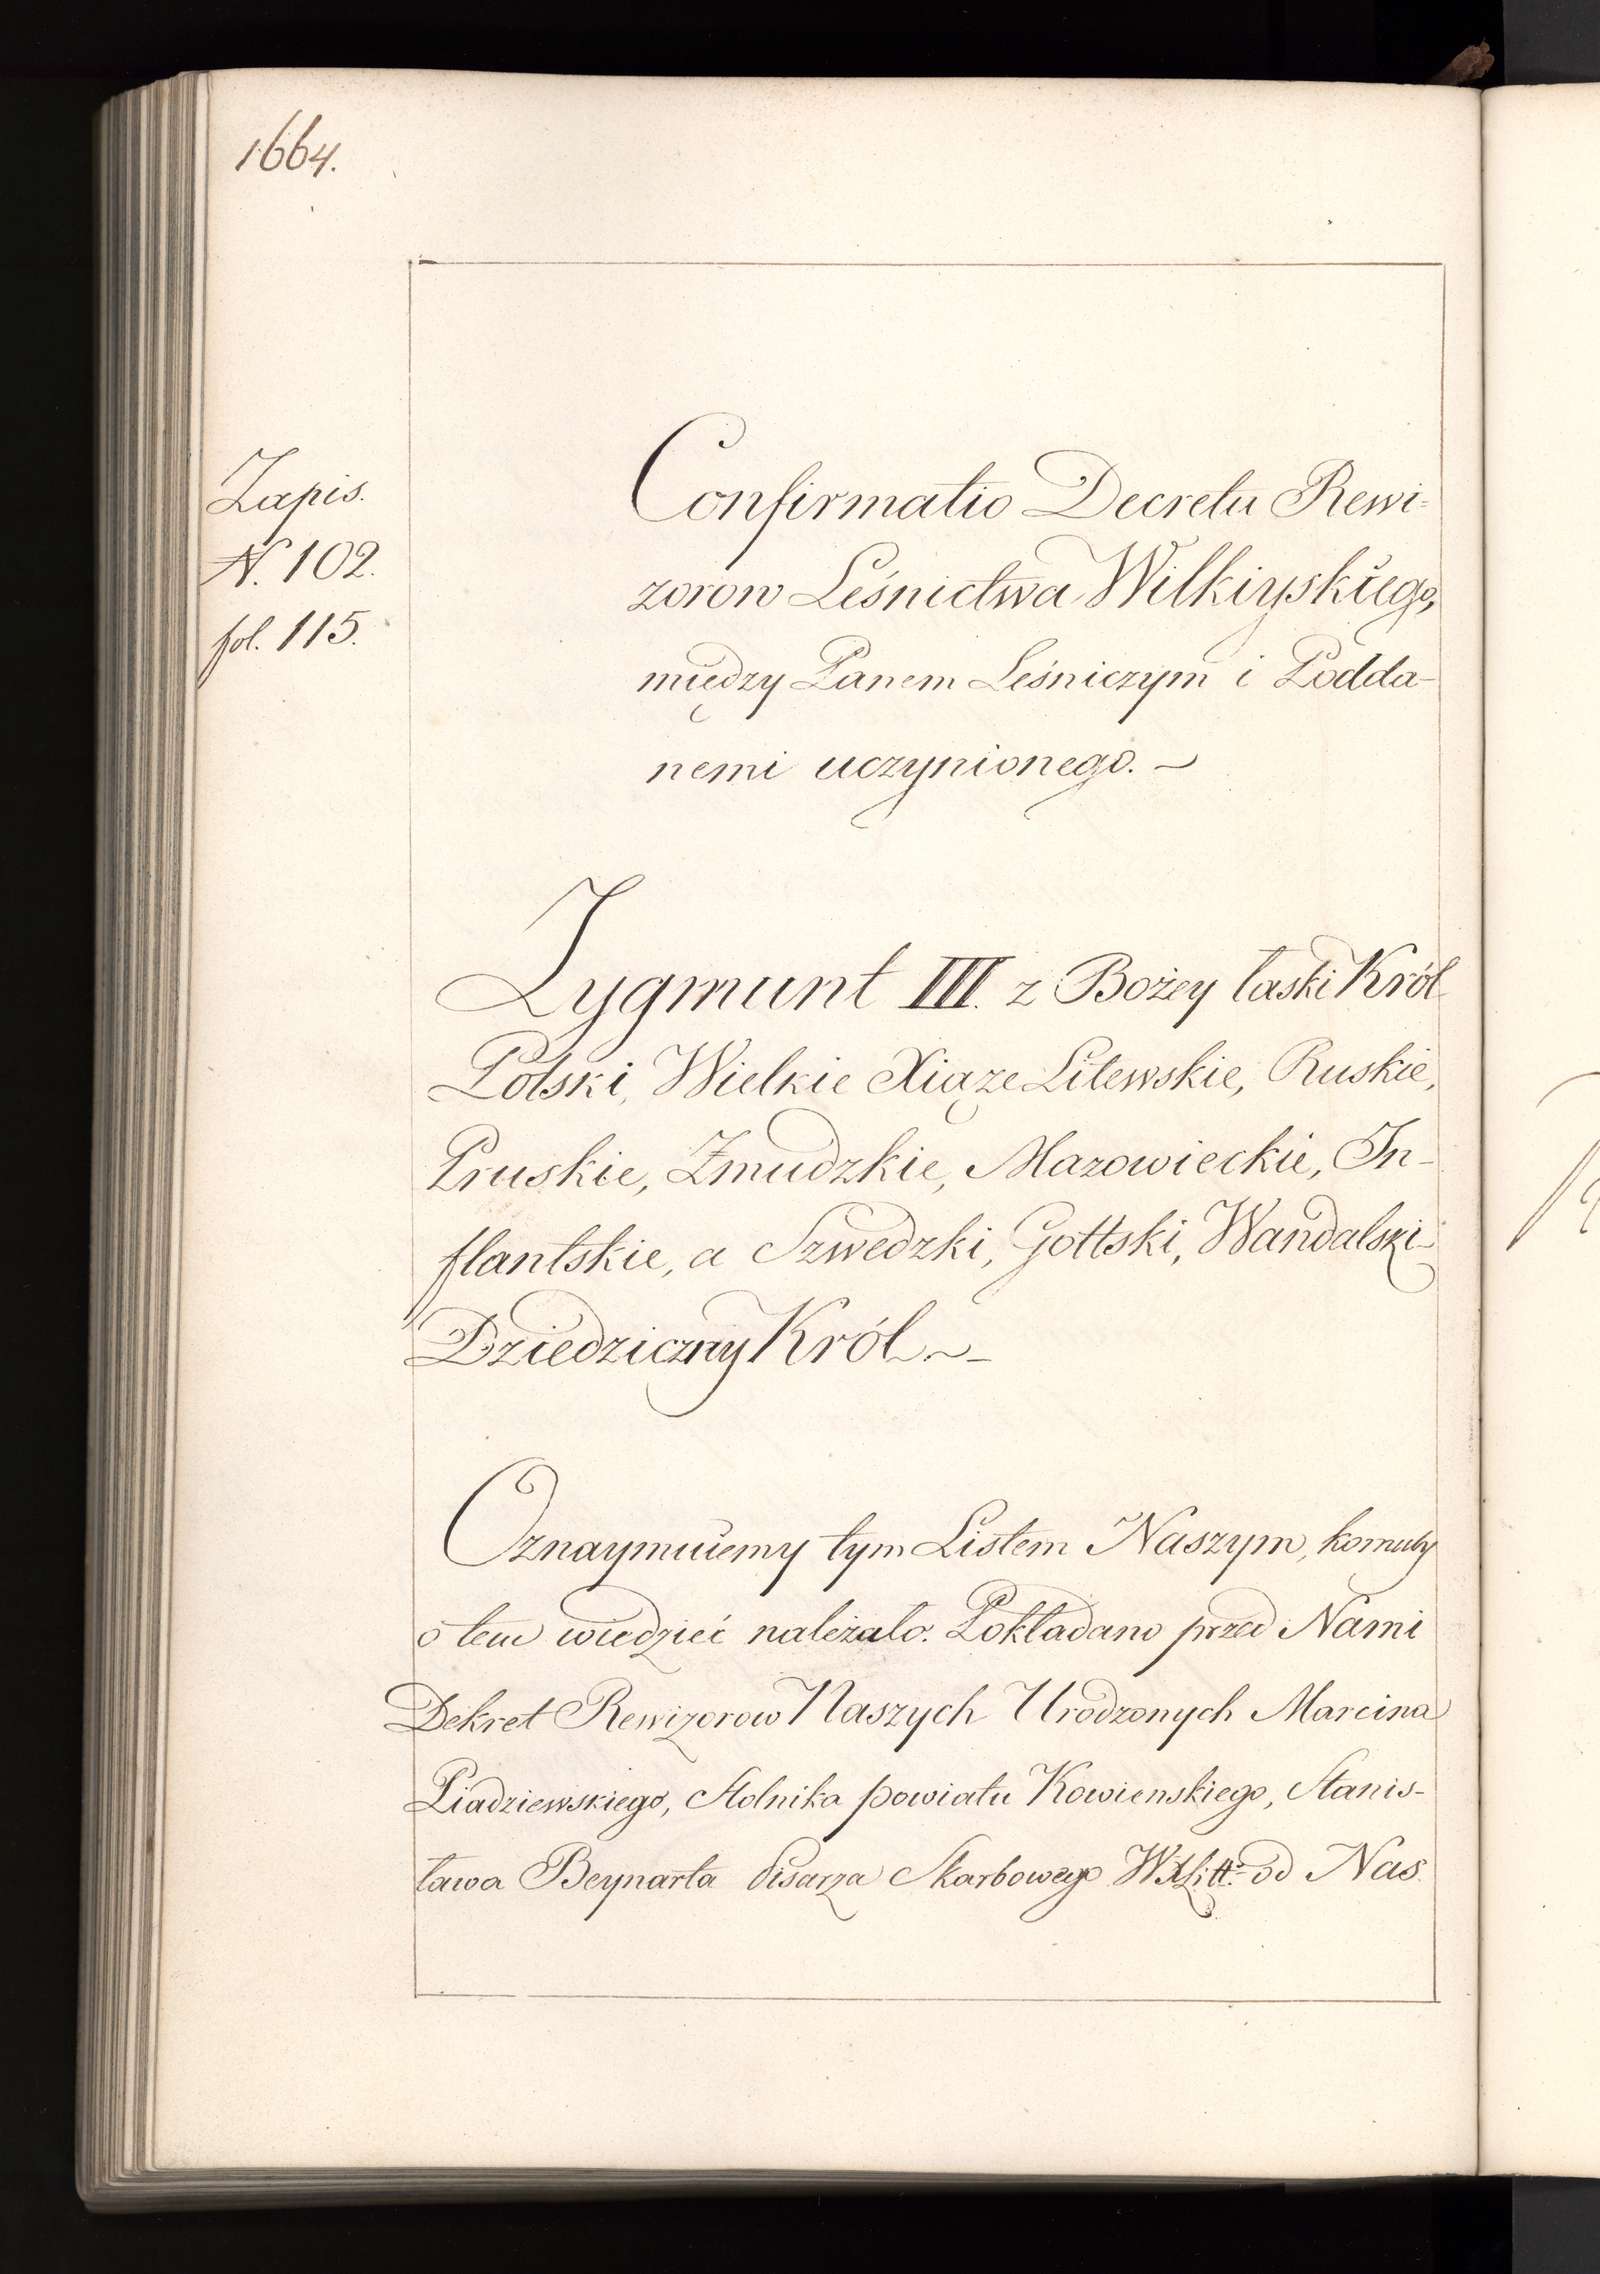 1664.
Zapis.
N. 102.
fol. 115.
Confirmatio Decretu Rewi-
zorow Leśnictwa Wilkiyskiego,
między Panem Leśniczym i Podda-
nemi uczynionego.
Zygmunt III. z Bożey łaski Król
Polski, Wielkie Xiąże Litewskie, Ruskie,
Pruskie, Żmudzkie, Mazowieckie, In-
flantskie, a Szwedzki, Gottski, Wandalski
Dziedziczny Król
Oznaymuiemy tym Listem Naszym, komuby
o tem wiedzieć należało. Pokładano przed Nami
Dekret Rewizorow Naszych Urodzonych Marcina
Piadziewskiego, Stolnika powiatu Kowienskiego, Stanis-
ława Beynarta Pisarza Skarbowego W.X.Litt. od Nas